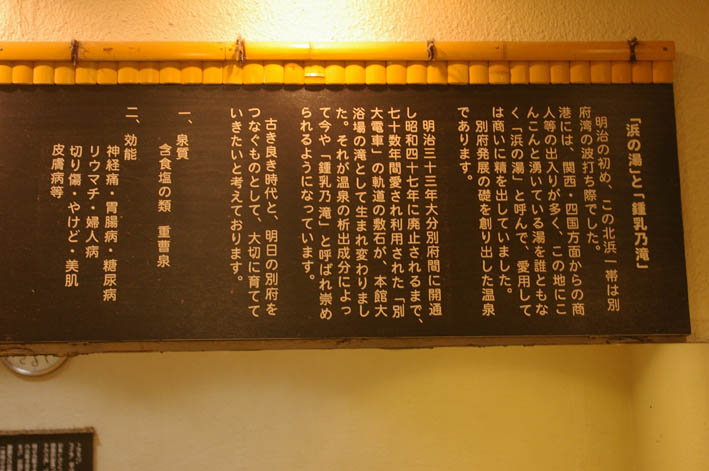 「浜の湯」と「鍾乳乃滝」
明治の初め、この北浜一帯は別
府湾の波打ち際でした。
港には、関西・四国方面からの商
人等の出入りが多く、この地にこ
んこんと湧いている湯を誰ともな
く「浜の湯」と呼んで、愛用して
は商いに精を出していました。
別府発展の礎を創り出した温泉
であります。
明治三十三年大分別府間に開通
し昭和四十七年に廃止されるまで、
七十数年間愛され利用された「別
大電車」の軌道の敷石が、本館大
浴場の滝として生まれ変わりまし
た。それが温泉の析出成分によっ
て今や「鍾乳乃滝」と呼ばれ崇め
られるようになっています。
古き良き時代と、明日の別府を
つなぐものとして、大切に育てて
いきたいと考えております。
一、泉質
含食塩の類 重曹泉
二、効能
神経痛・胃腸病・糖尿病
リウマチ・婦人病
切り傷・やけど・美肌
皮膚病等